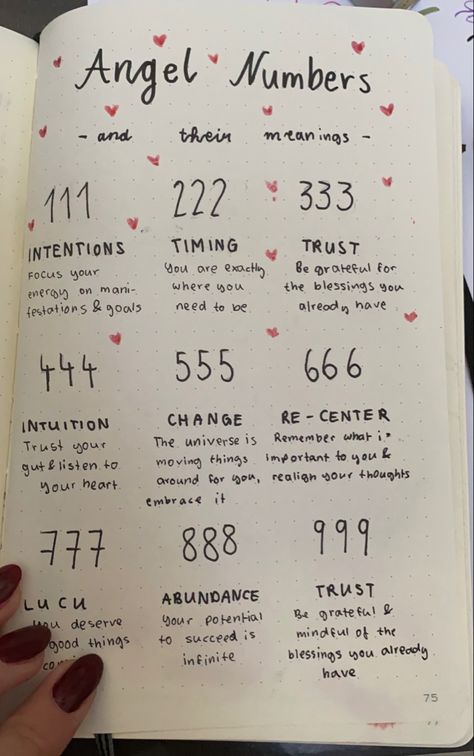 Angel Numbers
- and their meanings -
111
INTENTIONS
Focus your
energy on mani-
festations & goals
222
TIMING
You are exactly
where you
need to be
333
TRUST
Be grateful for
the blessings you
already have
444
INTUITION
Trust your
gut & listen to
your heart
555
CHANGE
The universe is
moving things
around for you,
embrace it
666
RE-CENTER
Remember what is
important to you &
realign your thoughts
777
LUCU
You deserve
good things
888
ABUNDANCE
Your potential
to succeed is
infinite
999
TRUST
Be grateful &
mindful of the
blessings you already
have
75